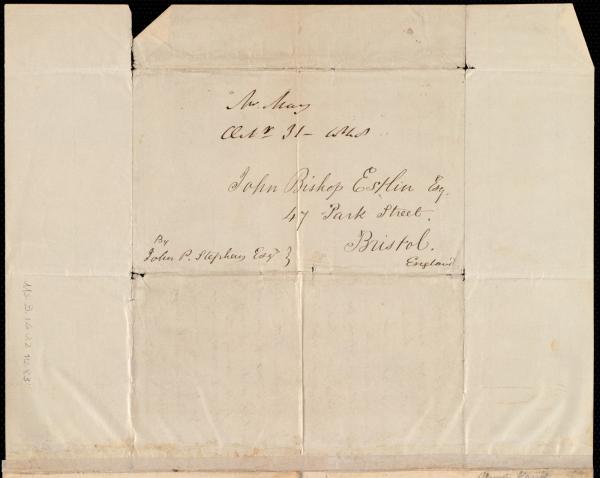 Mr. May
Octr. 31 - 1848
John Bishop Estlin Esq.
47 Park Street.
Bristol.
England
By
John P. Stephens Esqr }